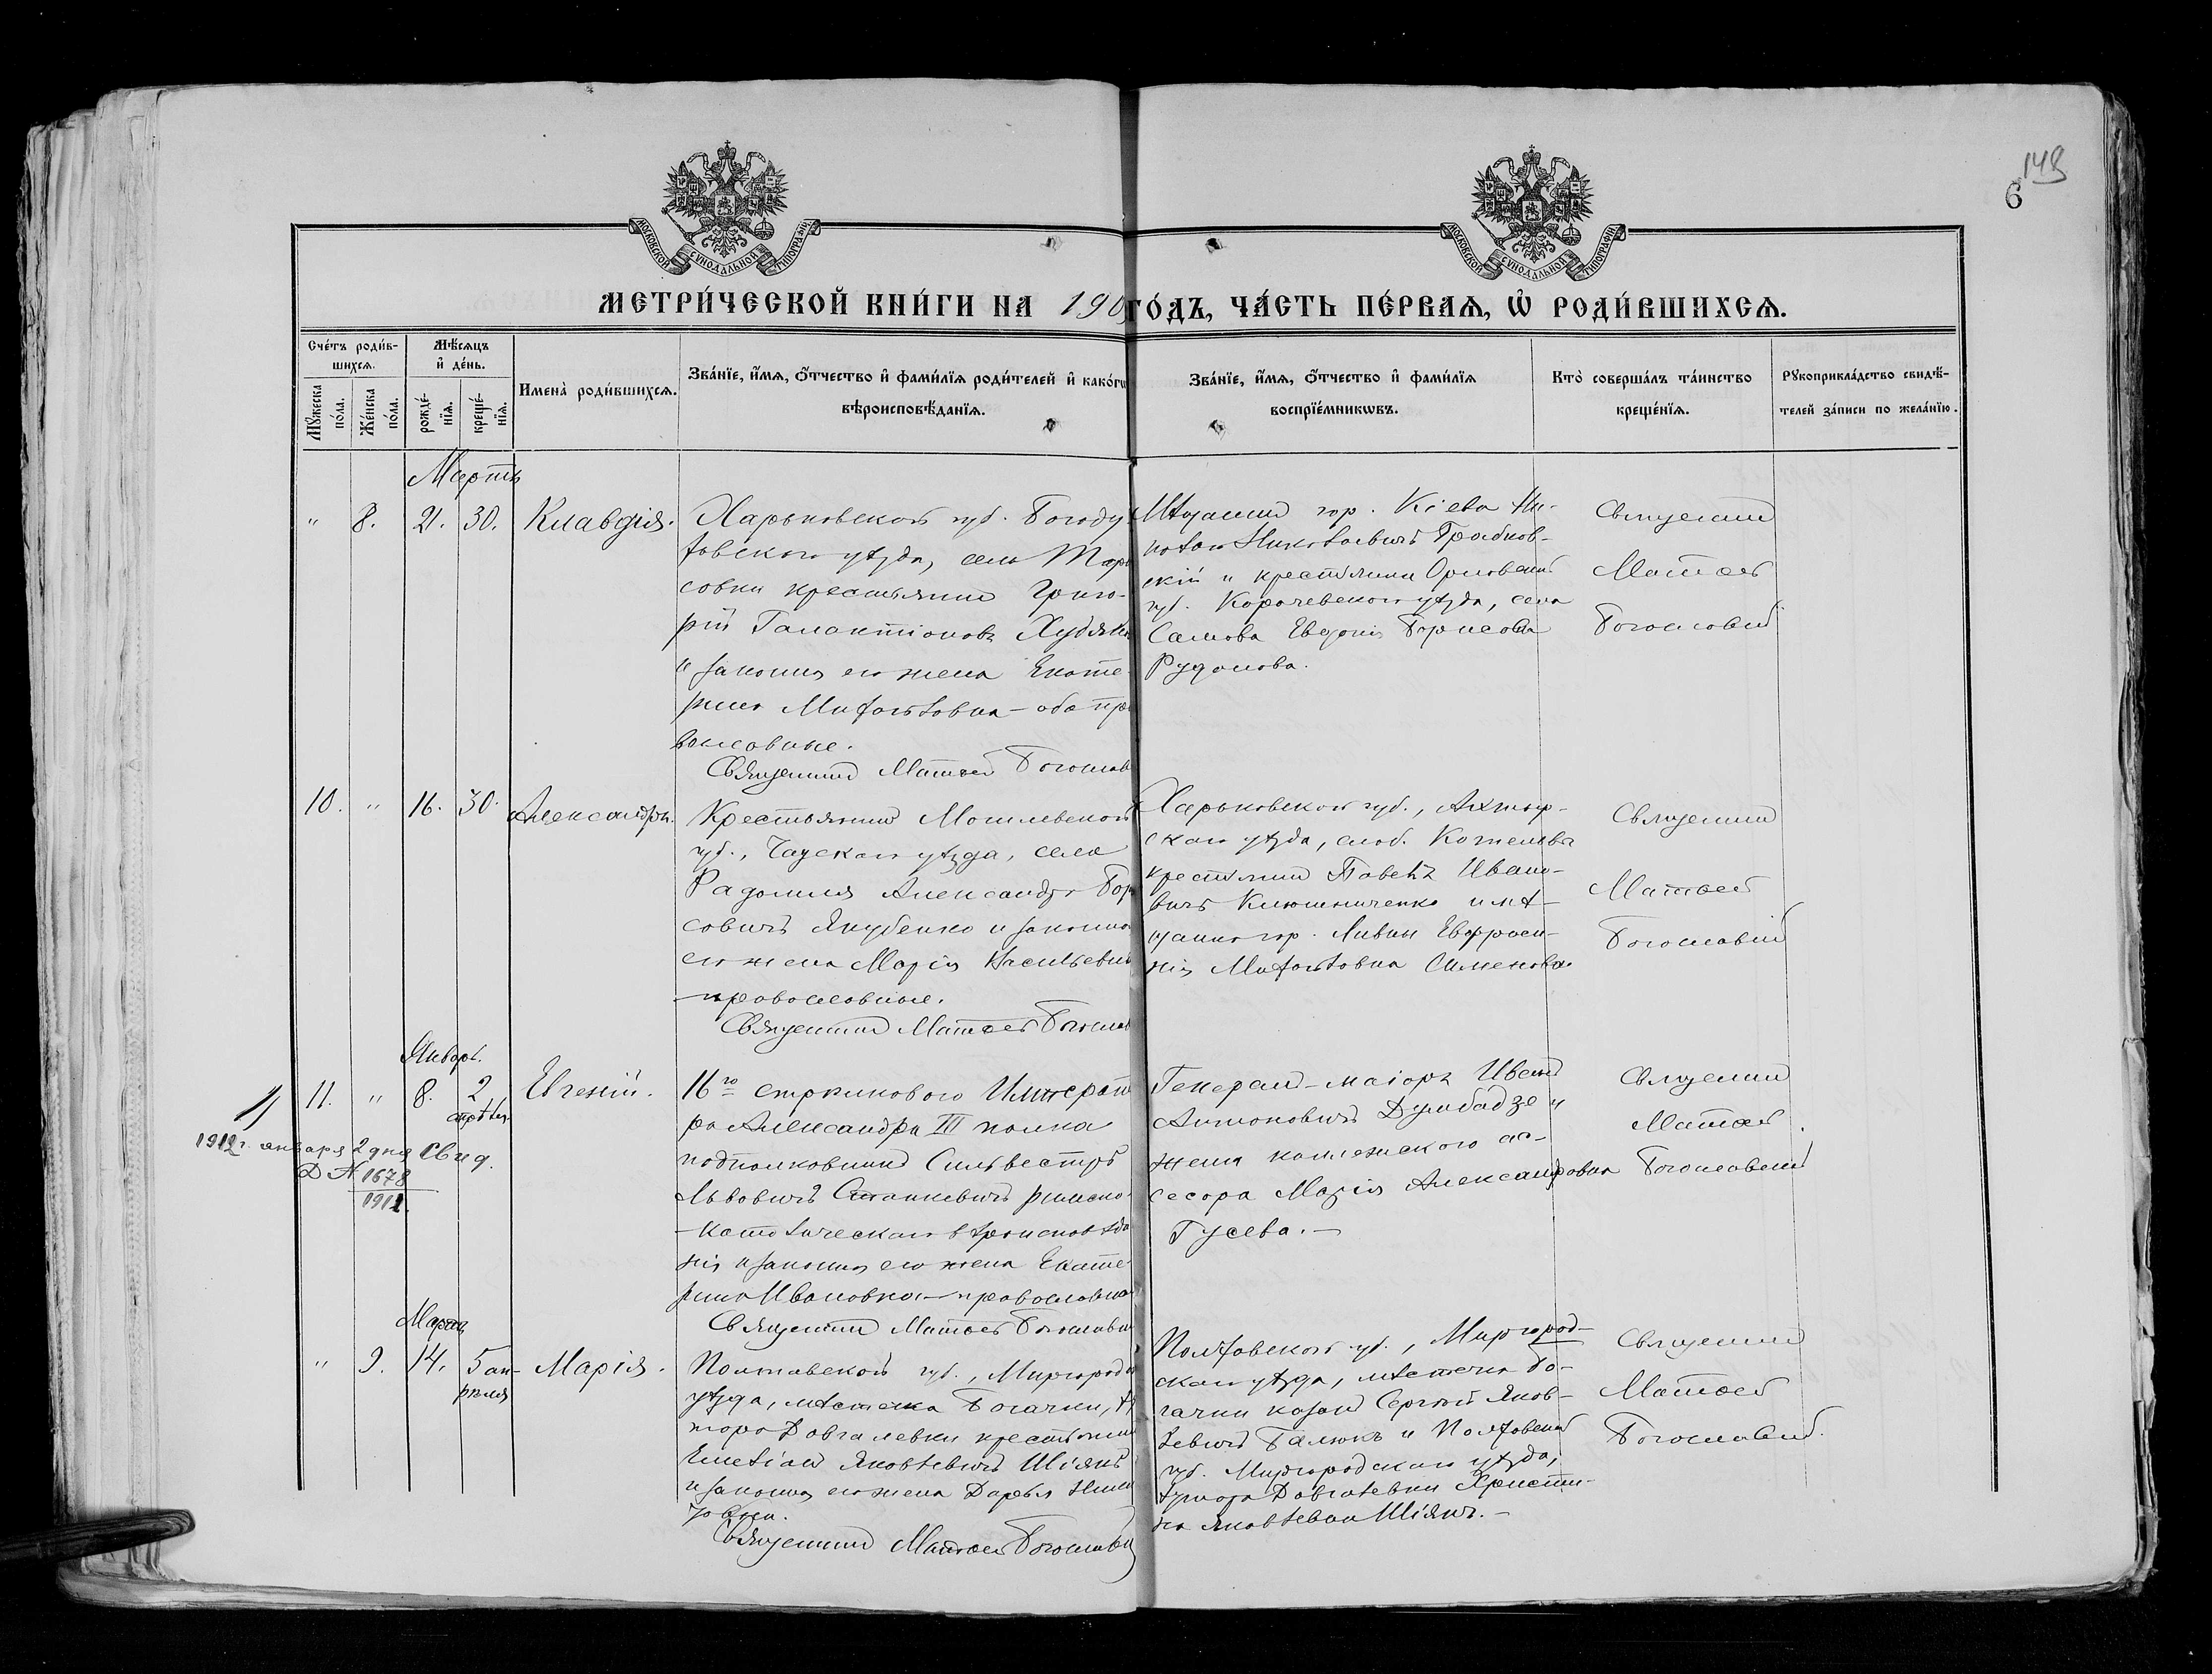 148
6
МОСКОВСКОЙ СѴНОДАЛЬНОЙ ТИПОГРАФІИ
МОСКОВСКОЙ СѴНОДАЛЬНОЙ ТИПОГРАФІИ
МЕТРИ́ЧЕСКОЙ КНИ́ГИ НА 190 ГО́ДЪ, ЧА́СТЬ ПЕ́РВАѦ, Ѡ҆ РОДИ́ВШИХСѦ.
Сче́тъ роди́в-
шихсѧ.
Мꙋ́жеска по́ла.
Же́нска по́ла.
Мѣ́сѧцъ
и҆ де́нь.
рожде́-
нїѧ.
креще́-
нїѧ.
И҆мена̀ роди́вшихсѧ.
Зва́нїе, и҆́мѧ, ѻ҆́тчество и҆ фами́лїѧ роди́телей и҆ како́гѡ
вѣроисповѣ́данїѧ.
Зва́нїе, и҆́мѧ, ѻ҆́тчество и҆ фами́лїѧ
воспрїе́мникѡвъ.
Кто̀ соверша́лъ та́инство
креще́нїѧ.
Рꙋкоприкла́дство свидѣ́-
телей за́писи по жела́нїю.
Мартъ
" 8. 21. 30. Клавдія.
Харьковской губ. Богоду
ховского уѣзда, села
совки крестьянинъ Григо-
рій Галактіоновъ Худяк
и законная его жена Екате-
рина Михайловна – оба пра
вославные.
Священникъ Матѳей Богослов
Мѣщанинъ гор. Кіева
Николаевичъ Грабков-
скій и крестьянка Орловской
губ. Карачевского уѣзда, села
Евдокія Борисова
Рудакова.
Священникъ
Матѳей
Богословскій
10. " 16. 30. Александръ.
Крестьянинъ Могилевской
губ., Чаусскаго уѣзда, села
Радомля Александръ Бори
совичъ Якубенко и законная
его жена Марія Васильевна
православные.
Священникъ Матѳей Богослов
Харьковской губ., Ахтыр-
скаго уѣзда, слоб. Котельва
крестьянинъ Павелъ Ивано-
вичъ Ключниченко и мѣ-
щанка гор. Ливны Евфроси-
нія Михайловна Симонова
Священникъ
Матѳей
Богословскій
Январь.
11. " 8. 2
Евгеній.
1912 г. января 2 дня Свид.
Д № 1678
1912.
16го стрѣлковаго Императо
ра Александра III полка
подполковникъ Сильвестръ
Львовичъ Станкевичъ римско-
-католическаго вѣроисповѣда
нія и законная его жена Екате
рина Ивановна – православная
Священникъ Матѳей Богослов
Генералъ-маіоръ Иванъ
Антоновичъ Думбадзе и
жена коллежского ас-
сесора Марія Александровна
Гусева. –
Священникъ
Матѳей
Богословскій
Мартъ
" 9. 14. 5 ап-
рѣля
Марія.
Полтавской губ., Миргород
уѣзда, мѣстечка Богачки, ху
тора Довгалевки крестьянинъ
Емеліанъ Яковлевичъ Шіянъ
и законная его жена Дарья
Священникъ Матѳей Богослов
Полтавской губ., Миргород-
скаго уѣзда, мѣстечка Бо-
гачки казакъ Сергѣй Яков-
левичъ Галюкъ и Полтавской
губ. Миргородскаго уѣзда,
хутора Довгалевки Христи-
на Яковлевна Шіянъ. –
Священникъ
Матѳей
Богословскій.